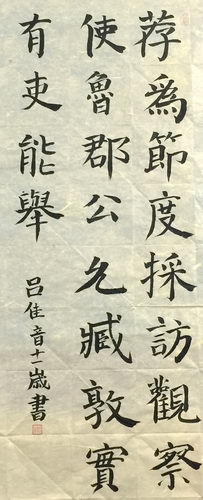 荐為節度採訪觀察
使魯郡公允臧敦實
有吏能舉
呂佳音十一歲書